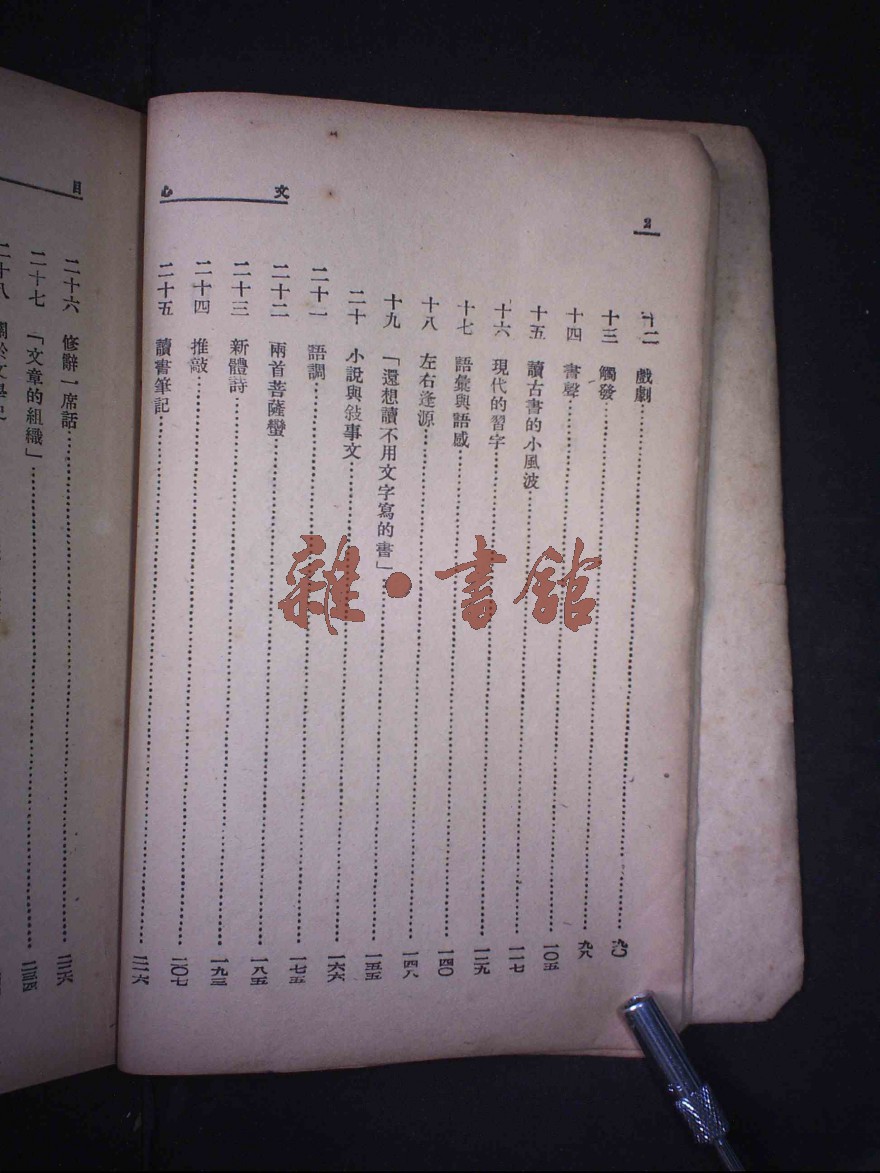 2
文心
十二 戲劇……九〇
十三 觸發……九八
十四 書聲……一〇五
十五 讀古書的小風波……一一七
十六 現代的習字……一二九
十七 語彙與語感……一四〇
十八 左右逢源……一四八
十九 「還想讀不用文字寫的書」……一五五
二十 小說與敍事文……一六六
二十一 語調……一七五
二十二 兩首菩薩蠻……一八五
二十三 新體詩……一九三
二十四 推敲……二〇七
二十五 讀書筆記……二一六
目
二十六 修辭一席話……二二六
二十七 「文章的組織」……二三四
二十八
雜·書館